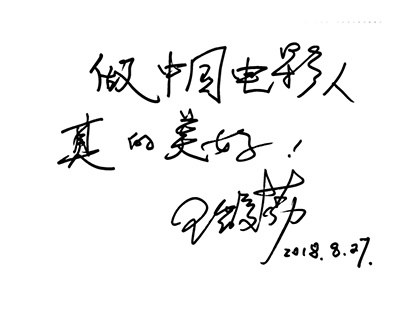 做中国电影人
真的美好！
2018.8.27.